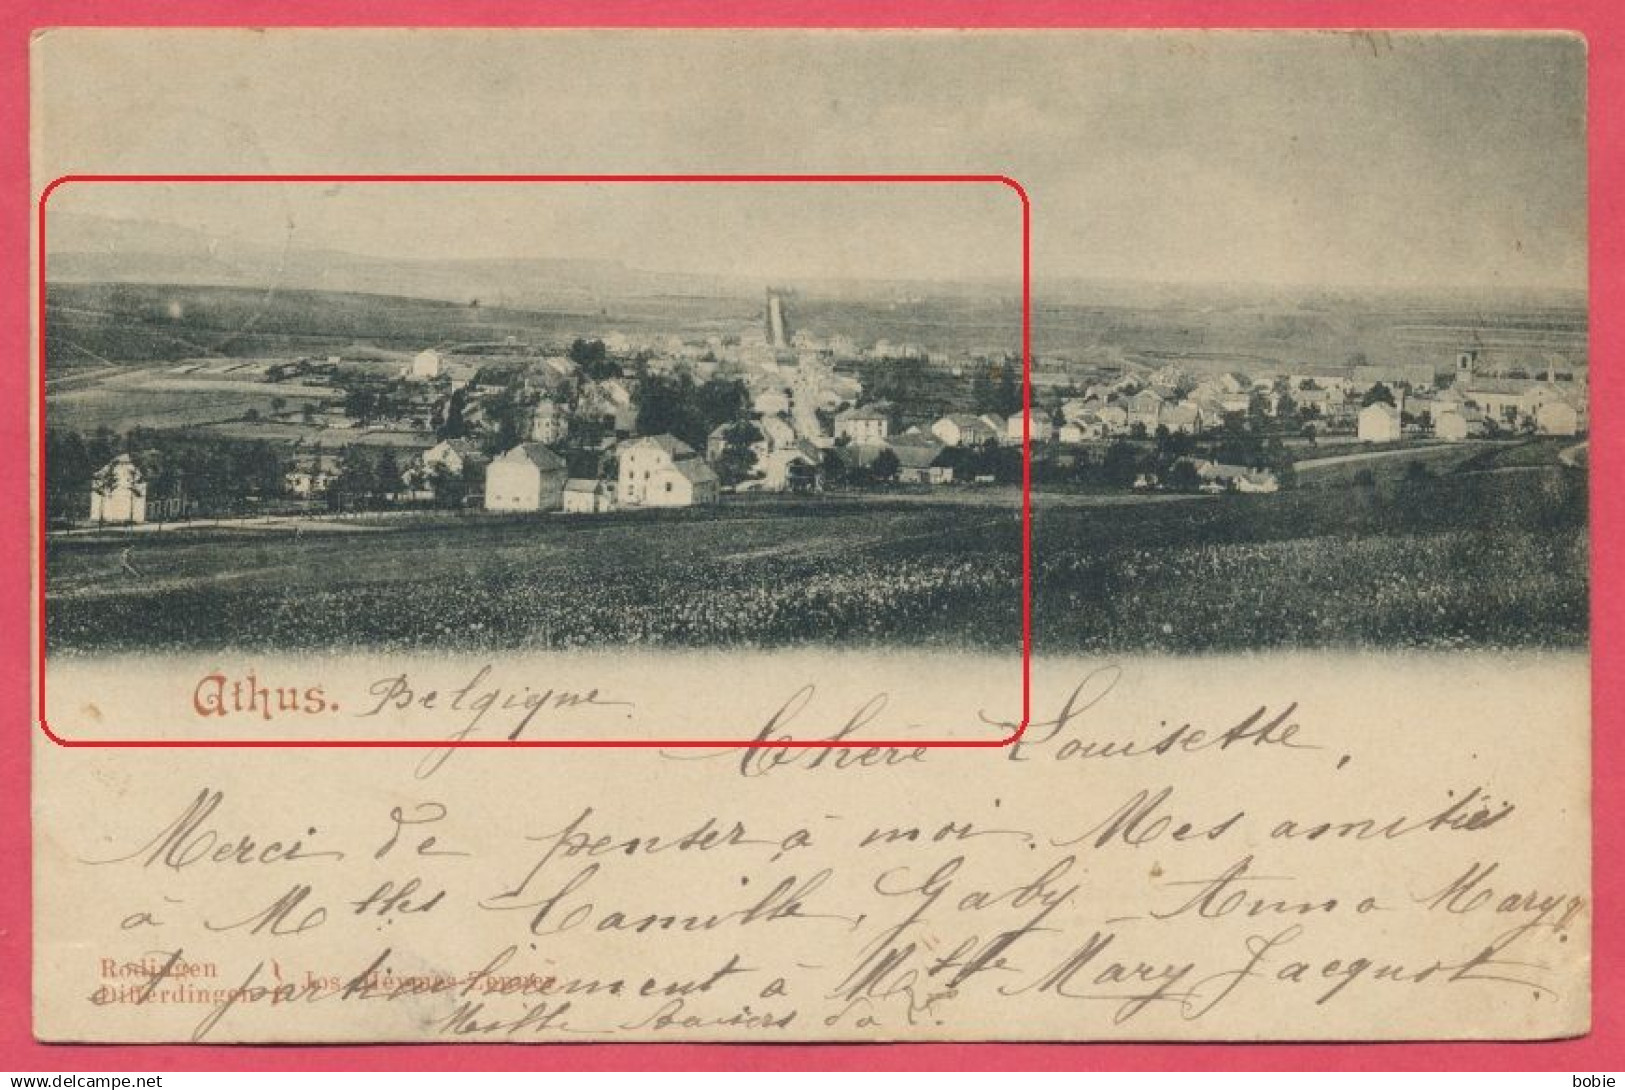 Athus. Belgique
Chère Louisette,
Merci de penser à moi. Mes amitiés
à Mlles Camille, Gaby, Anna Mary
et particulièrement à Mlle Mary Jacquot.
Mille baisers de
Rodingen
Differdingen } Jos. Heymes-Zenner.
delcampe.net
bobie